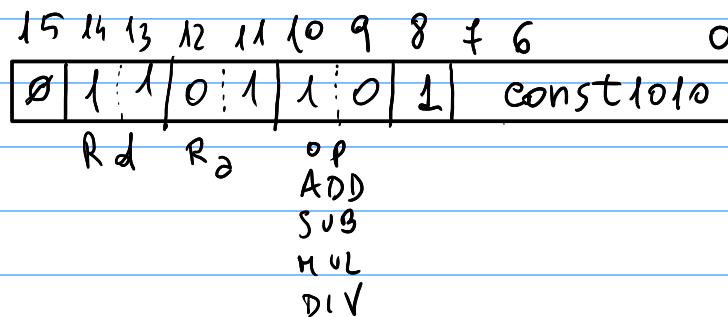 15 14 13 12 11 10 9 8 7 6 0
0 1 1 0 1 1 0 1 const1010
Rd Ra OP
ADD
SUB
MUL
DIV